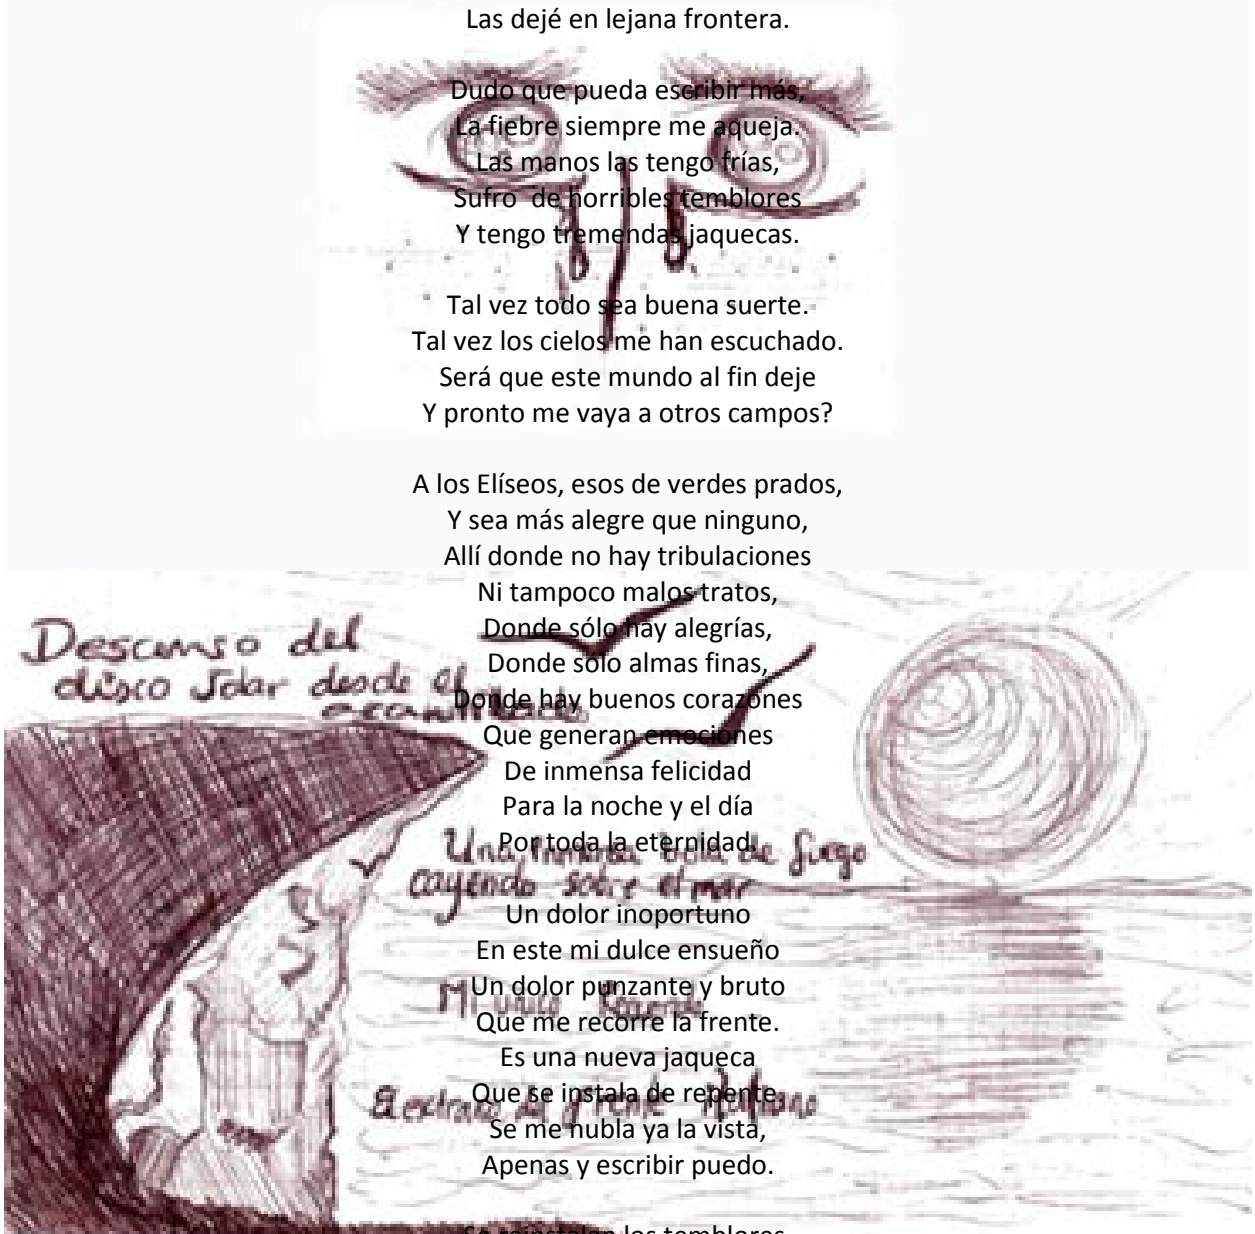 Las dejé en lejana frontera.
Dudo que pueda escribir más,
La fiebre siempre me aqueja.
Las manos las tengo frías,
Sufro  de horribles temblores
Y tengo tremendas jaquecas.
Tal vez todo sea buena suerte.
Tal vez los cielos me han escuchado.
Será que este mundo al fin deje
Y pronto me vaya a otros campos?
A los Elíseos, esos de verdes prados,
Y sea más alegre que ninguno,
Allí donde no hay tribulaciones
Ni tampoco malos tratos,
Donde sólo hay alegrías,
Donde sólo almas finas,
Donde hay buenos corazones
Que generan emociones
De inmensa felicidad
Para la noche y el día
Por toda la eternidad.
Un dolor inoportuno
En este mi dulce ensueño
Un dolor punzante y bruto
Que me recorre la frente.
Es una nueva jaqueca
Que se instala de repente.
Se me nubla ya la vista,
Apenas y escribir puedo.
Se reinstalan los temblores
Descanso del
disco solar desde el
acantilado
Una inmensa bola de fuego
cayendo sobre el mar
Mi único
El extraño